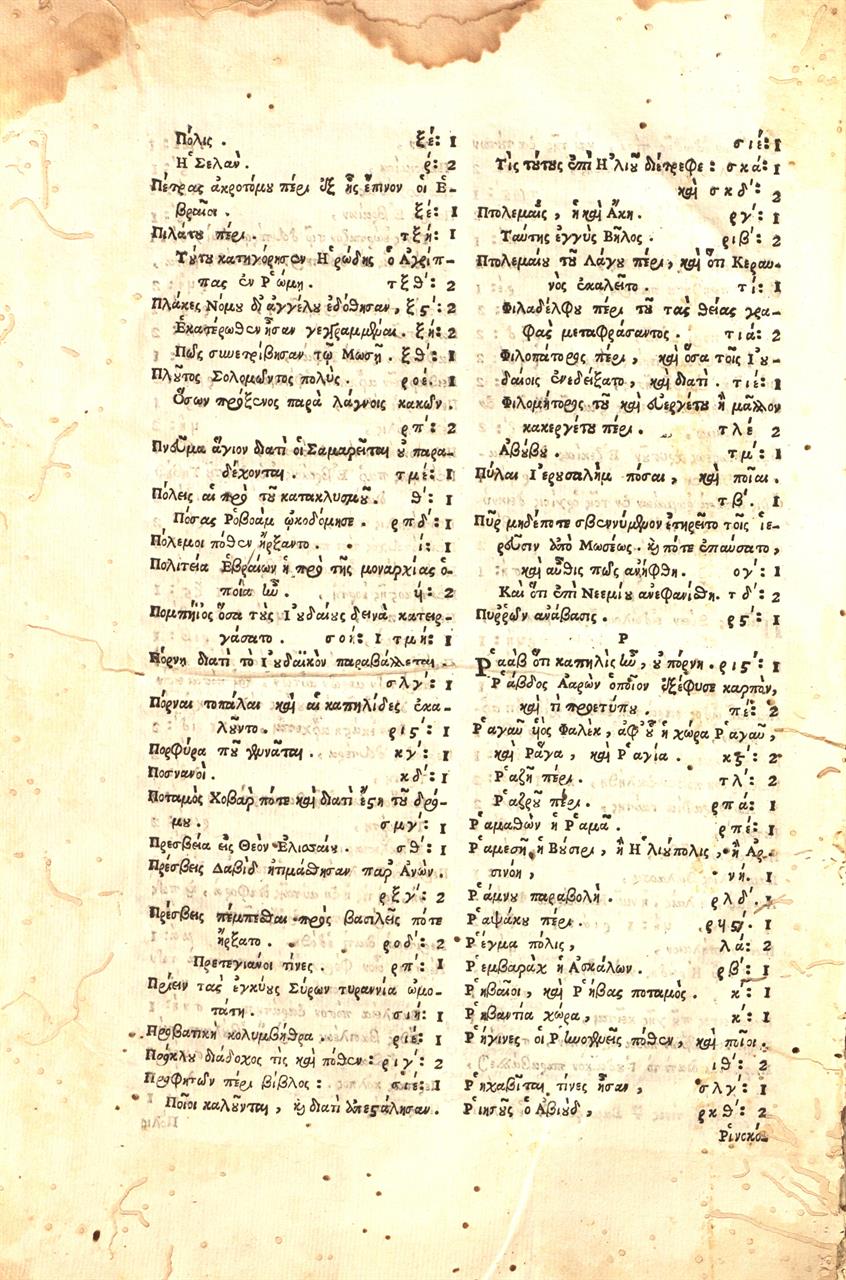 Πόλις . ξέ: 1
Ἡ Σελάν . ρ́: 2
Πέτρας ἀκροτόμου πέρι ἐξ ἧς ἔπινον οἱ Ἑ-
βραῖοι . ξέ: 1
Πιλάτου πέρι . τξή: 1
Τούτου κατηγόρησεν Ἡρώδης ὁ Ἀγρίπ-
πας ἐν Ῥώμῃ . τξθ́: 2
Πλάκες Νόμου δι' ἀγγέλου ἐδόθησαν, ξϛ́: 2
Ἑκατέρωθεν ἦσαν γεγραμμέναι . ξή: 2
Πῶς συνετρίβησαν τῷ Μωσῇ . ξθ́: 1
Πλοῦτος Σολομῶντος πολύς . ροέ. 1
Ὅσων πρόξενος παρὰ λάγνοις κακῶν .
ρπ́: 2
Πνεῦμα ἅγιον διατί οἱ Σαμαρεῖται οὐ παρα-
δέχονται . τμέ: 1
Πόλεις αἱ πρὸ τοῦ κατακλυσμοῦ . θ́: 1
Πόσας Ῥοβοὰμ ᾠκοδόμησε . ρπδ́: 1
Πόλεμοι πόθεν ἤρξαντο . ί: 1
Πολιτεία Ἑβραίων ἡ πρὸ τῆς μοναρχίας ὁ-
ποία ἦν . ή: 2
Πομπήϊος ὅσα τοὺς Ἰουδαίους δεινὰ κατειρ-
γάσατο . σοί: 1 τμή: 1
Πόρνῃ διατί τὸ Ἰουδαϊκὸν παραβάλλεται .
σλγ́: 1
Πόρναι τοπάλαι καὶ αἱ καπηλίδες ἐκα-
λοῦντο . ριϛ́: 1
Πορφύρα ποῦ γεννᾶται . κγ́: 1
Ποσνανοί . κδ́: 1
Ποταμὸς Χοβὰρ πότε καὶ διατί ἔστη τοῦ δρό-
μου . σμγ́: 1
Πρεσβεία εἰς Θεὸν Ἐλισσαίου . σθ́: 1
Πρέσβεις Δαβὶδ ἠτιμάθησαν παρ' Ἀνών .
ρξγ́: 2
Πρέσβεις πέμπεσθαι πρὸς βασιλεῖς πότε
ἤρξατο . ροδ́: 2
Πρετεγιάνοι τίνες . ρπ́: 1
Πρίειν τὰς ἐγκύους Σύρων τυραννία ὠμο-
τάτη . σιή: 1
Προβατικὴ κολυμβήθρα . ριέ: 1
Πρόκλου διάδοχος τίς καὶ πόθεν: ριγ́: 2
Προφητῶν πέρι βίβλος: σιέ: 1
Ποῖοι καλοῦνται, καὶ διατί ἀπεστάλησαν .
σιέ: 1
Τίς τούτους ἐπὶ Ἠλιοῦ διέτρεφε: σκά: 1
καὶ σκδ́: 2
Πτολεμαΐς, ἡ καὶ Ἄκη . ργ́: 1
Ταύτης ἐγγὺς Βῆλος . ριβ́: 2
Πτολεμαίου τοῦ Λάγου πέρι, καὶ ὅτι Κεραυ-
νὸς ἐκαλεῖτο . τί: 1
Φιλαδέλφου πέρι τοῦ τὰς θείας γρα-
φὰς μεταφράσαντος . τιά: 2
Φιλοπάτορος πέρι, καὶ ὅσα τοῖς Ἰου-
δαίοις ἐνεδείξατο, καὶ διατί . τιέ: 1
Φιλομήτορος τοῦ καὶ εὐεργέτου ἢ μᾶλλον
κακεργέτου πέρι . τλέ 2
Ἀβούβου . τμ́: 1
Πύλαι Ἰερουσαλὴμ πόσαι, καὶ ποῖαι .
τβ́ . 1
Πῦρ μηδέποτε σβεννύμενον ἐτηρεῖτο τοῖς ἱε-
ρεῦσιν ὑπὸ Μωσέως . καὶ πότε ἐπαύσατο,
καὶ αὖθις πῶς ἀνήφθη . ογ́: 1
Καὶ ὅτι ἐπὶ Νεεμίου ἀνεφανίσθη . τδ́: 2
Πυῤῥῶν ἀνάβασις . ρϛ́: 1
Ρ
Ῥαὰβ ὅτι καπηλὶς ἦν, οὐ πόρνη . ριϛ́: 1
Ῥάβδος Ἀαρὼν ὁποῖον ἐξέφυσε καρπὸν,
καὶ τί προετύπου . πέ: 2
Ῥαγαῦ υἱὸς Φαλὲκ, ἀφ' οὗ ἡ χώρα Ῥαγαῦ,
καὶ Ῥάγα, καὶ Ῥαγία . κϛ́: 2
Ῥαζῆ πέρι . τλ́: 2
Ῥαζροῦ πέρι . ρπά: 1
Ῥαμαθὼν ἡ Ῥαμᾶ . ρπέ: 1
Ῥαμεσῆ, ἡ Βύσιρι, ἢ Ἡλιούπολις, ἢ Ἀρ-
σινόη, νή. 1
Ῥάμνου παραβολή . ρλδ́. 1
Ῥαψάκου πέρι . ρϟϛ́. 1
Ῥέγμα πόλις, λά: 2
Ῥεμβαρὰχ ἡ Ἀσκάλων . ρβ́: 1
Ῥηβαῖοι, καὶ Ῥήβας ποταμός . κ́: 1
Ῥηβαντία χώρα, κ́: 1
Ῥήγινες οἱ Ῥιμουθιεῖς πόθεν, καὶ ποῖοι .
ιθ́: 2
Ῥηχαβῖται τίνες ἦσαν, σλγ́: 1
Ῥιησοῦς ὁ Ἀβιοὺδ, ρκθ́: 2
Ῥινοκό-